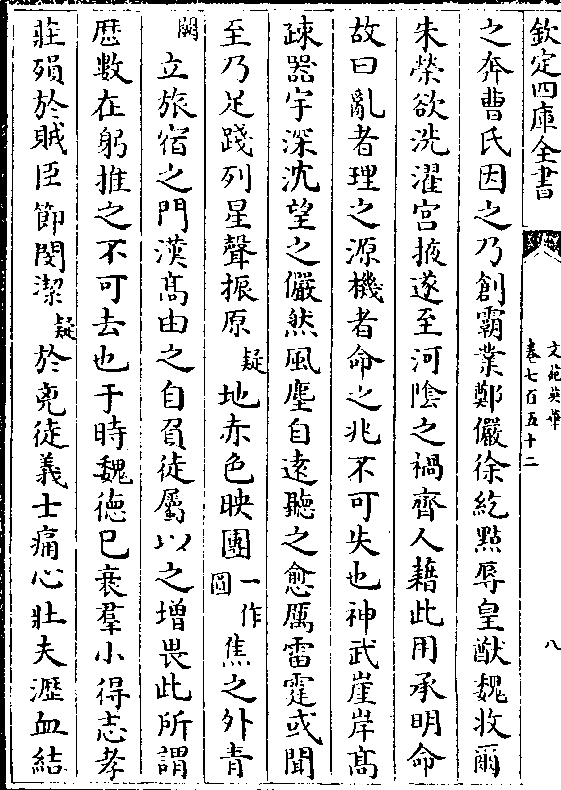 欽定四庫全書
文苑英華
卷七百五十二
八
之奔曹氏因之乃創霸業鄭儼徐紇點辱皇猷魏收爾
朱榮欲洗濯宮掖遂至河陰之禍齊人藉此用承明命
故曰亂者理之源機者命之兆不可失也神武崖岸高
疎器宇深沈望之儼然風塵自遠聽之愈厲雷霆或聞
至乃足踐列星聲振原疑地赤色映團一作圖焦之外青
闕立旅宿之門漢高由之自負徒屬以之增畏此所謂
厯數在躬推之不可去也于時魏德已衰羣小得志孝
莊殞於賊臣節閔潔疑於兇徒義士痛心壯夫瀝血結